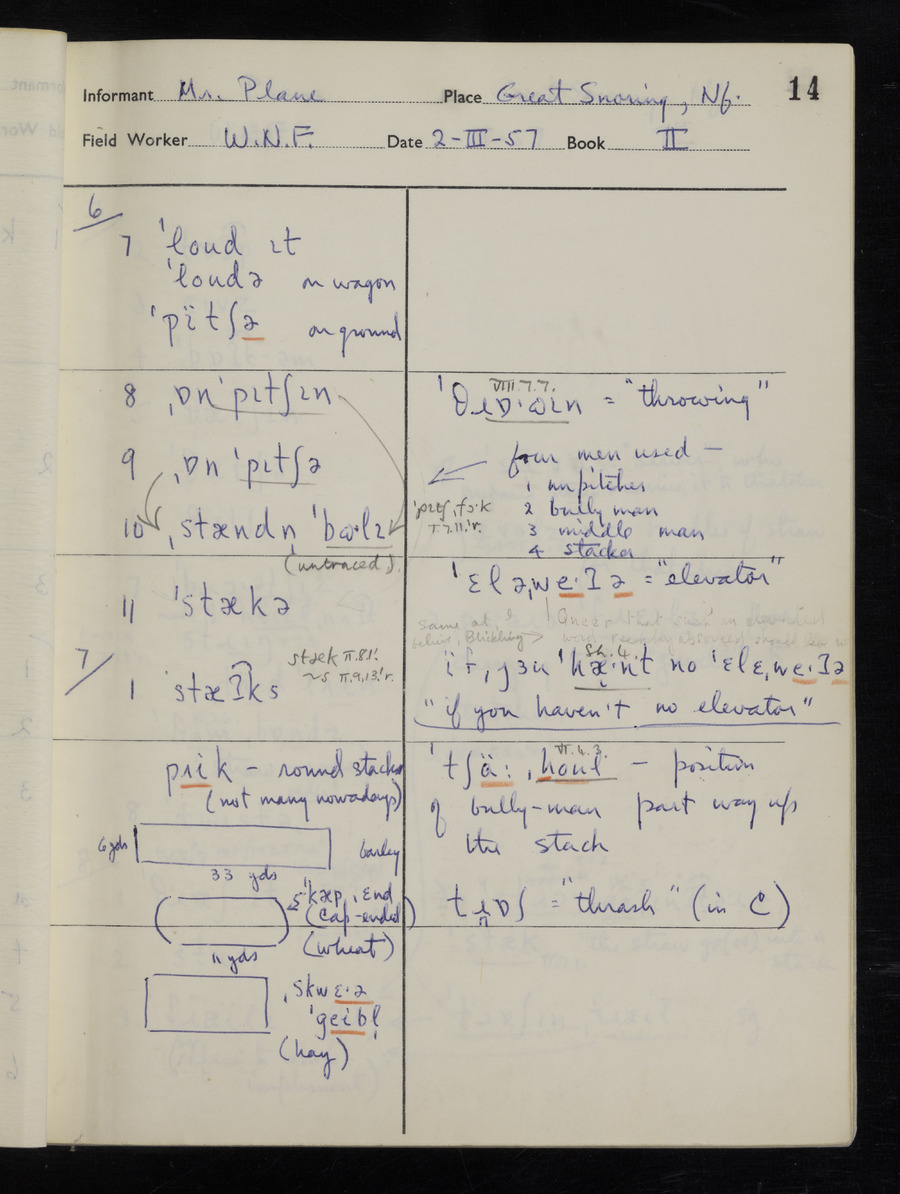 Informant Mr. Plane Place Great Snoring, Nf. 14
Field Worker W.N.F. Date 2-III-57 Book II
6
7 ˈloud ɪt
ˈloudə on wagon
ˈpïtʃə on ground
8 ˌɒnˈpɪtʃɪn
9 ˌɒn ˈpɪtʃə
10 ˌstændn̩
(untraced)
11 ˈstækə
7
1
stæk II.8.1.
prik – round stacks
(not many nowadays)
6 yds barley
33 yds
ˈkæp ˌɛnd
(cap-ended)
(wheat)
11 yds
ˌskwɛ·ə
ˈgeibl̩
(hay)
VIII.7.7.
= "throwing"
four men used –
1 unpitcher
2 bully man
3 middle man
4 stacker
= "elevator"
Same at
Blickling
"if you haven't no elevator"
VI.4.3.
ˈtʃä: ˌhoul – position
of bully-man part way up
the stack
= "thrash" (in C)